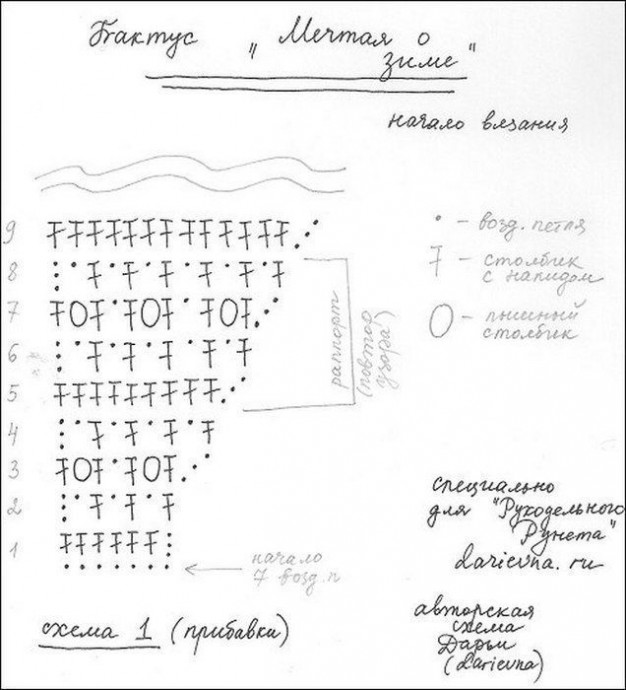 Бактус „ Мечтая о
зиме "
начало вязания
9
8
7
6
5
4
3
2
1
• – возд. петля
– столбик
с накидом
– пышный
столбик
раппорт
(повтор
узора)
начало
7 возд. п
специально
для "Рукодельного
Рунета"
darievna.ru
схема 1 (прибавки)
авторская
схема
Дарьи
(darievna)